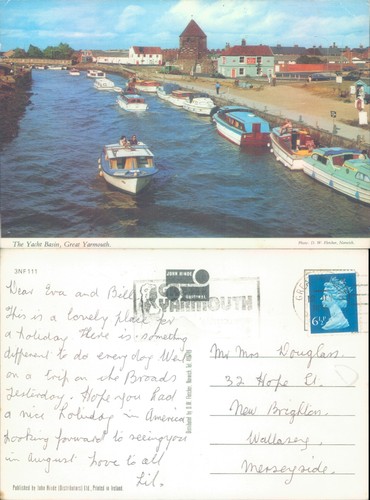 The Yacht Basin, Great Yarmouth.
Photo: D. W. Fletcher, Norwich.
3NF111
YARMOUTH
6½P
Dear Eva and Bill
This is a lovely place for
a holiday there is something
different to do every day Went
on a trip on the Broads
yesterday. Hope you had
a nice holiday in America
Looking forward to seeing you
in August Love to all
Lil.
Mr Mrs Douglas.
32 Hope St.
New Brighton.
Wallasey.
Merseyside.
Published by John Hinde (Distributors) Ltd., Printed in Ireland.